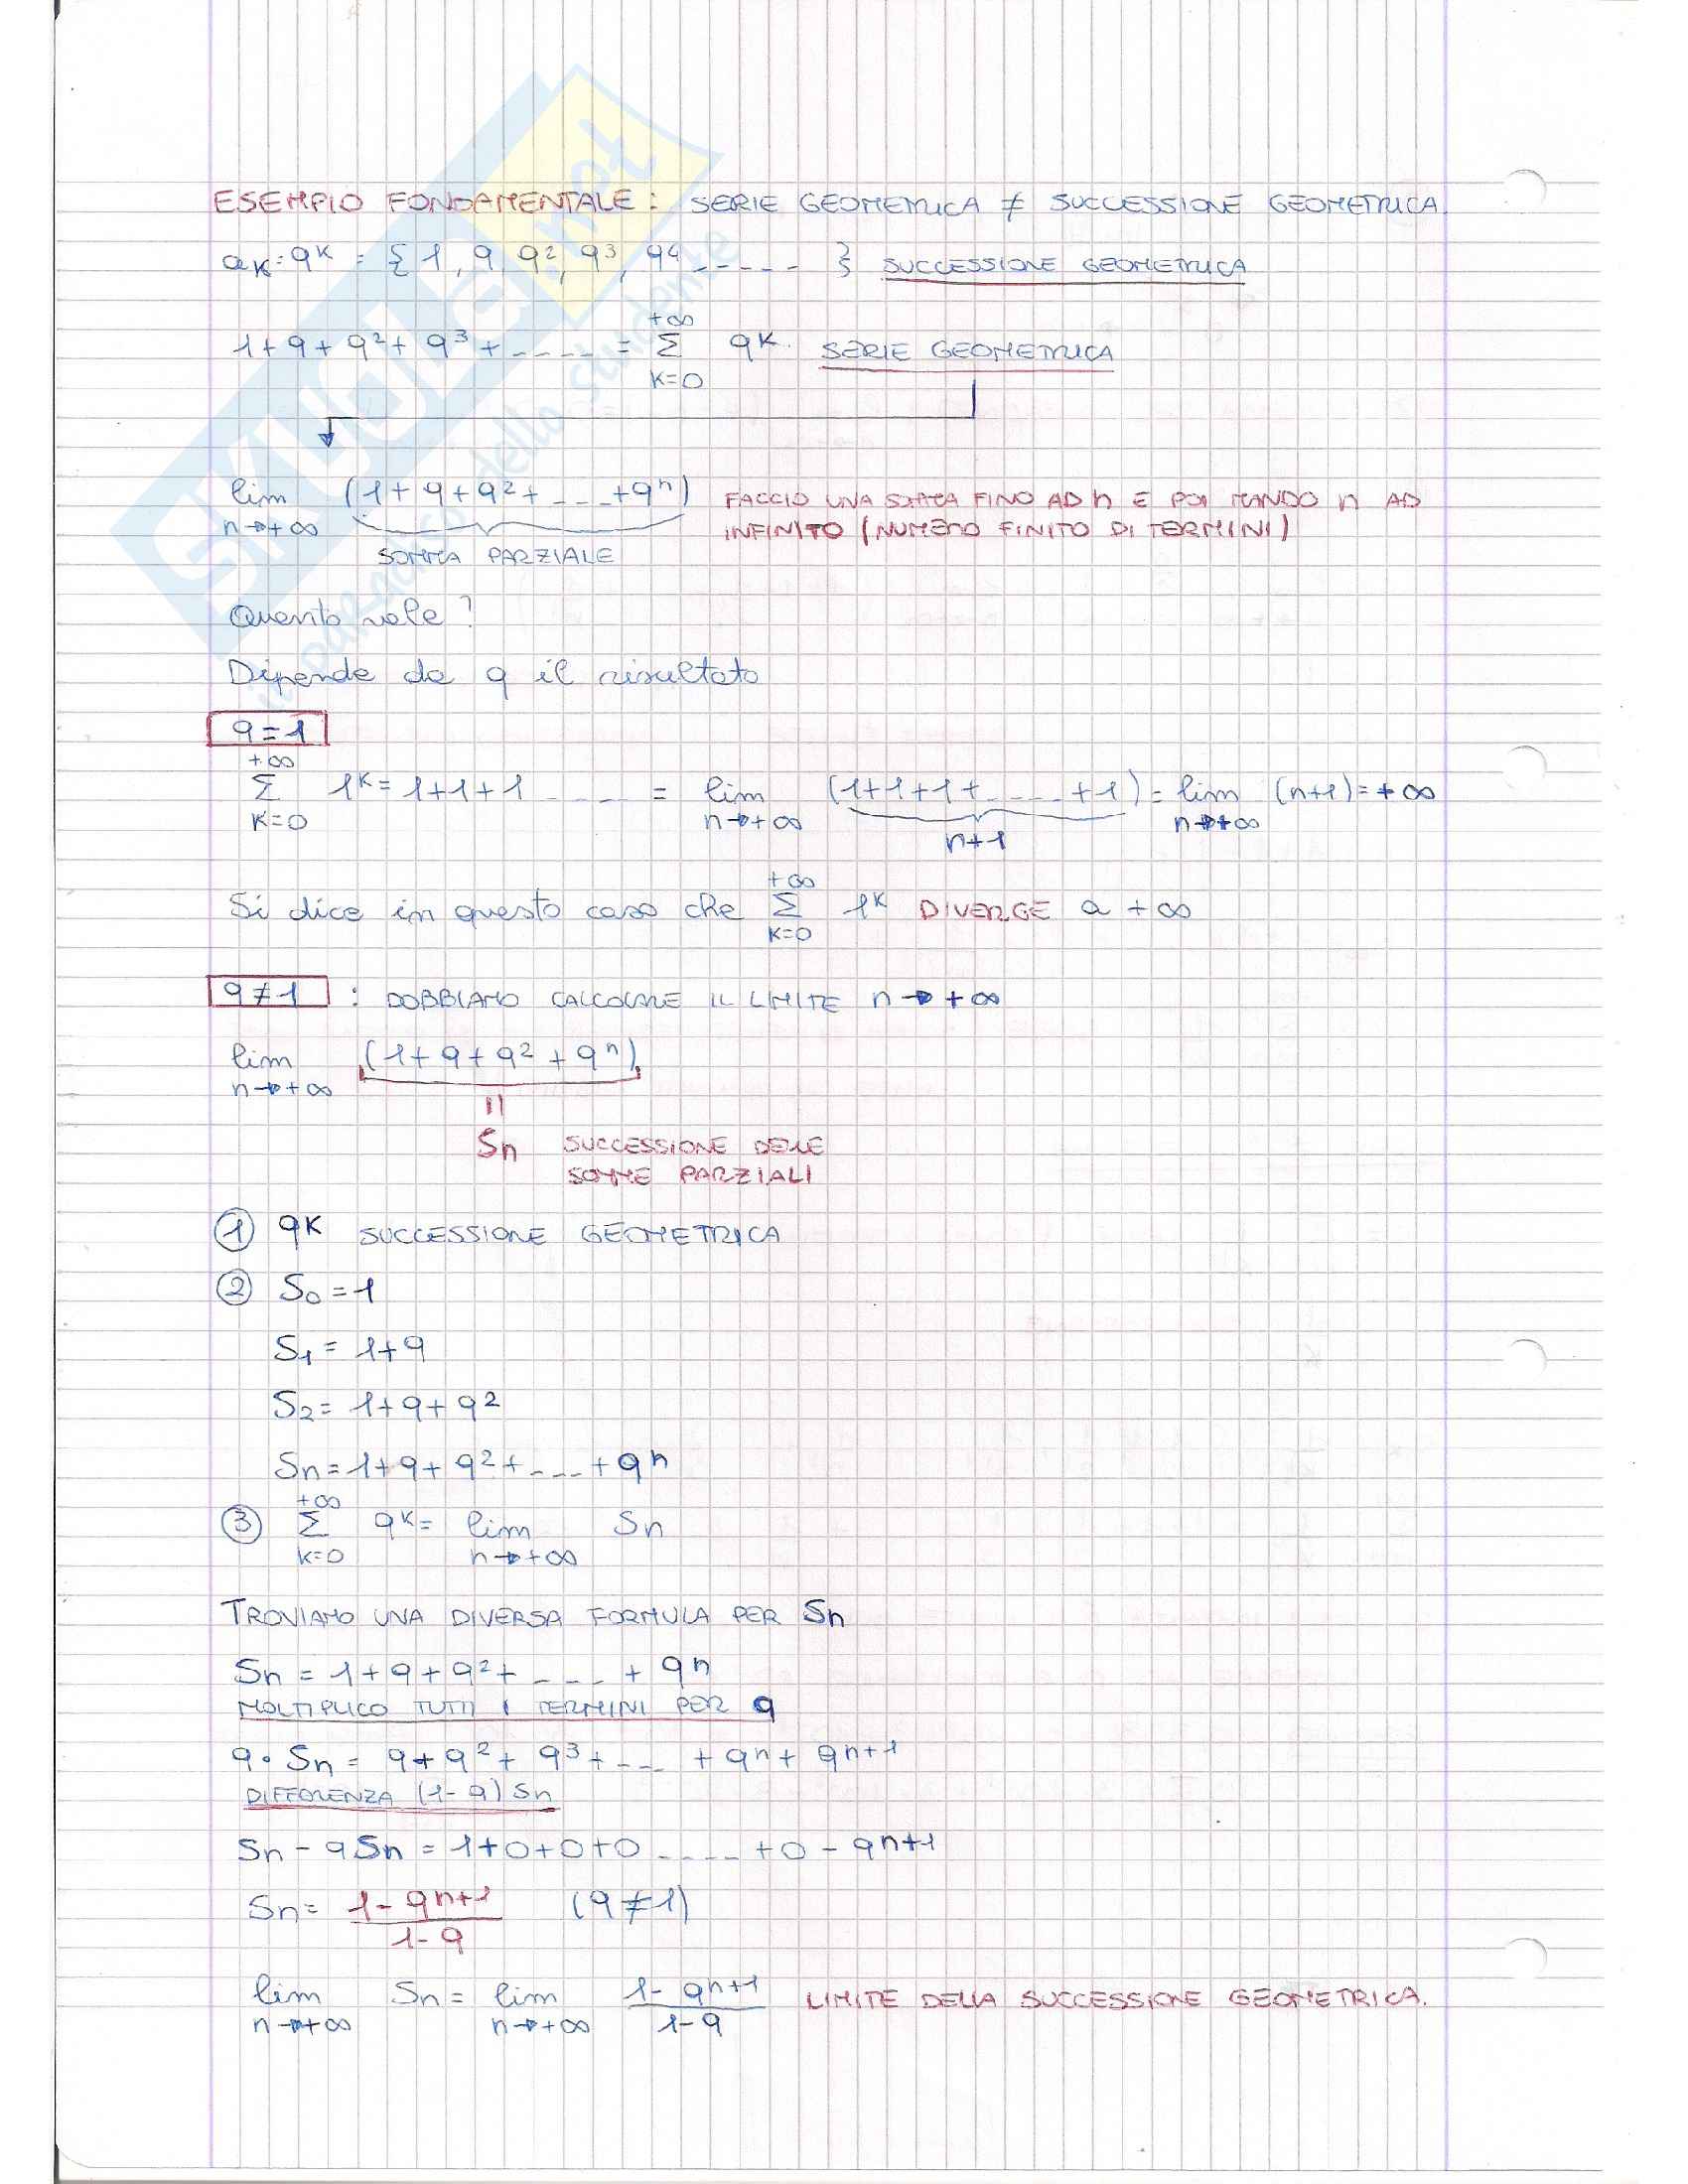 ESEMPIO FONDAMENTALE: SERIE GEOMETRICA ≠ SUCCESSIONE GEOMETRICA.
aK: qK = { 1, q, q², q³, q⁴ ----- } SUCCESSIONE GEOMETRICA
1+q+q²+q³+---- = +∞ Σ K=0 qK. SERIE GEOMETRICA
lim n→+∞ (1+q+q²+---+qⁿ) FACCIO UNA SOMMA FINO AD n E POI MANDO n AD
INFINITO (NUMERO FINITO DI TERMINI)
SOMMA PARZIALE
Quanto vale?
Dipende da q il risultato
q=1
+∞ Σ K=0 1K = 1+1+1 ---- = lim n→+∞ (1+1+1+----+1) = lim n→+∞ (n+1) = +∞
n+1
Si dice in questo caso che +∞ Σ K=0 1K DIVERGE a +∞
q≠1 : DOBBIAMO CALCOLARE IL LIMITE n→+∞
lim n→+∞ (1+q+q²+qⁿ)
=
Sn SUCCESSIONE DELLE
SOMME PARZIALI
① qK SUCCESSIONE GEOMETRICA
② S0=1
S1=1+q
S2=1+q+q²
Sn=1+q+q²+---+qⁿ
③ +∞ Σ K=0 qK= lim n→+∞ Sn
TROVIAMO UNA DIVERSA FORMULA PER Sn
Sn = 1+q+q²+----+qⁿ
MOLTIPLICO TUTTI I TERMINI PER q
q·Sn = q+q²+q³+---+qⁿ+qn+1
DIFFERENZA (1-q)Sn
Sn-qSn=1+0+0+0-----+0-qn+1
Sn= 1-qn+1 / 1-q (q≠1)
lim n→+∞ Sn= lim n→+∞ 1-qn+1 / 1-q LIMITE DELLA SUCCESSIONE GEOMETRICA.